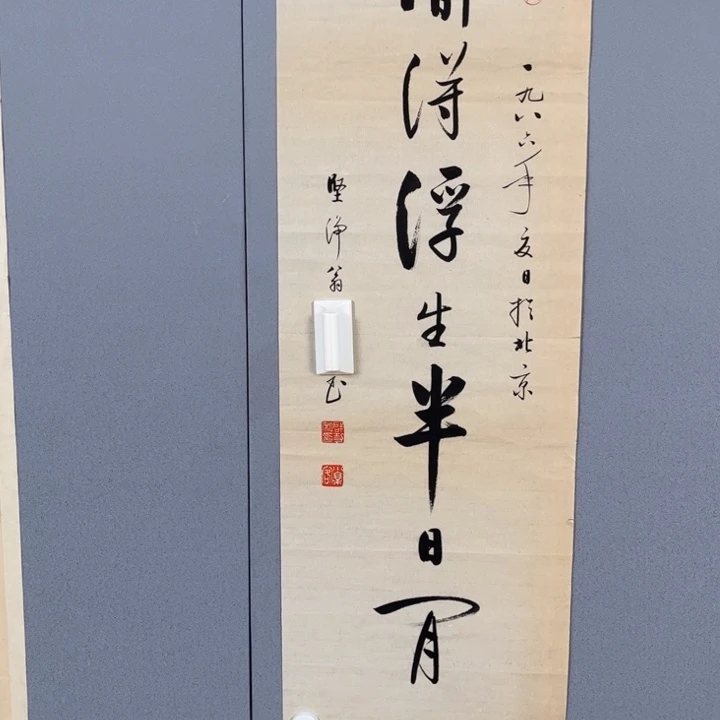 一九八六年夏日於北京
偷得浮生半日閒
坚净翁
书